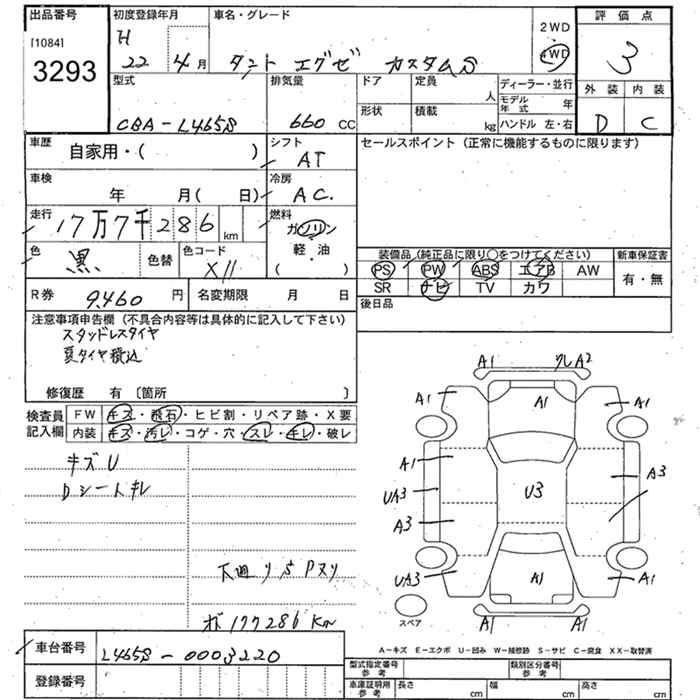 出品番号
[1084]
3293
初度登録年月
H
22年 4月
車名・グレード
タント エグゼ カスタムS
2WD
4WD
評価点
3
外装 内装
D C
型式
CBA-L465S
排気量
660 CC
ドア
定員
人
ディーラー・並行
モデル年式 年
形状
積載
kg
ハンドル 左・右
車歴
自家用・( )
シフト
AT
セールスポイント (正常に機能するものに限ります)
車検
年 月( 日)
冷房
AC.
走行
17万7千286 km
燃料
ガソリン
軽・油
( )
色
黒
色替
色コード
X11
装備品(純正品に限り○をつけてください)
新車保証書
PS PW ABS エアB AW
有・無
SR ナビ TV カワ
R券
9,460 円
名変期限 月 日
後日品
注意事項申告欄 (不具合内容等は具体的に記入して下さい)
スタッドレスタイヤ
夏タイヤ積込
修復歴 有 〔箇所 〕
検査員記入欄
FW キズ・飛石・ヒビ割・リペア跡・X要
内装 キズ・汚レ・コゲ・穴・スレ・キレ・破レ
キズU
Dシートキレ
下廻り
ホ゛177286Km
A1 A2
A1 A1 A1
A1
UA3 U3 A3
A3
UA3 A1 A1
A1 A1
スペア
A-キズ E-エクボ U-凹み W-補修跡 S-サビ C-腐食 XX-取替済
車台番号
L465S-0003220
登録番号
型式指定番号 参考
類別区分番号 参考
車庫証明用 参考
長さ cm
幅 cm
高さ cm